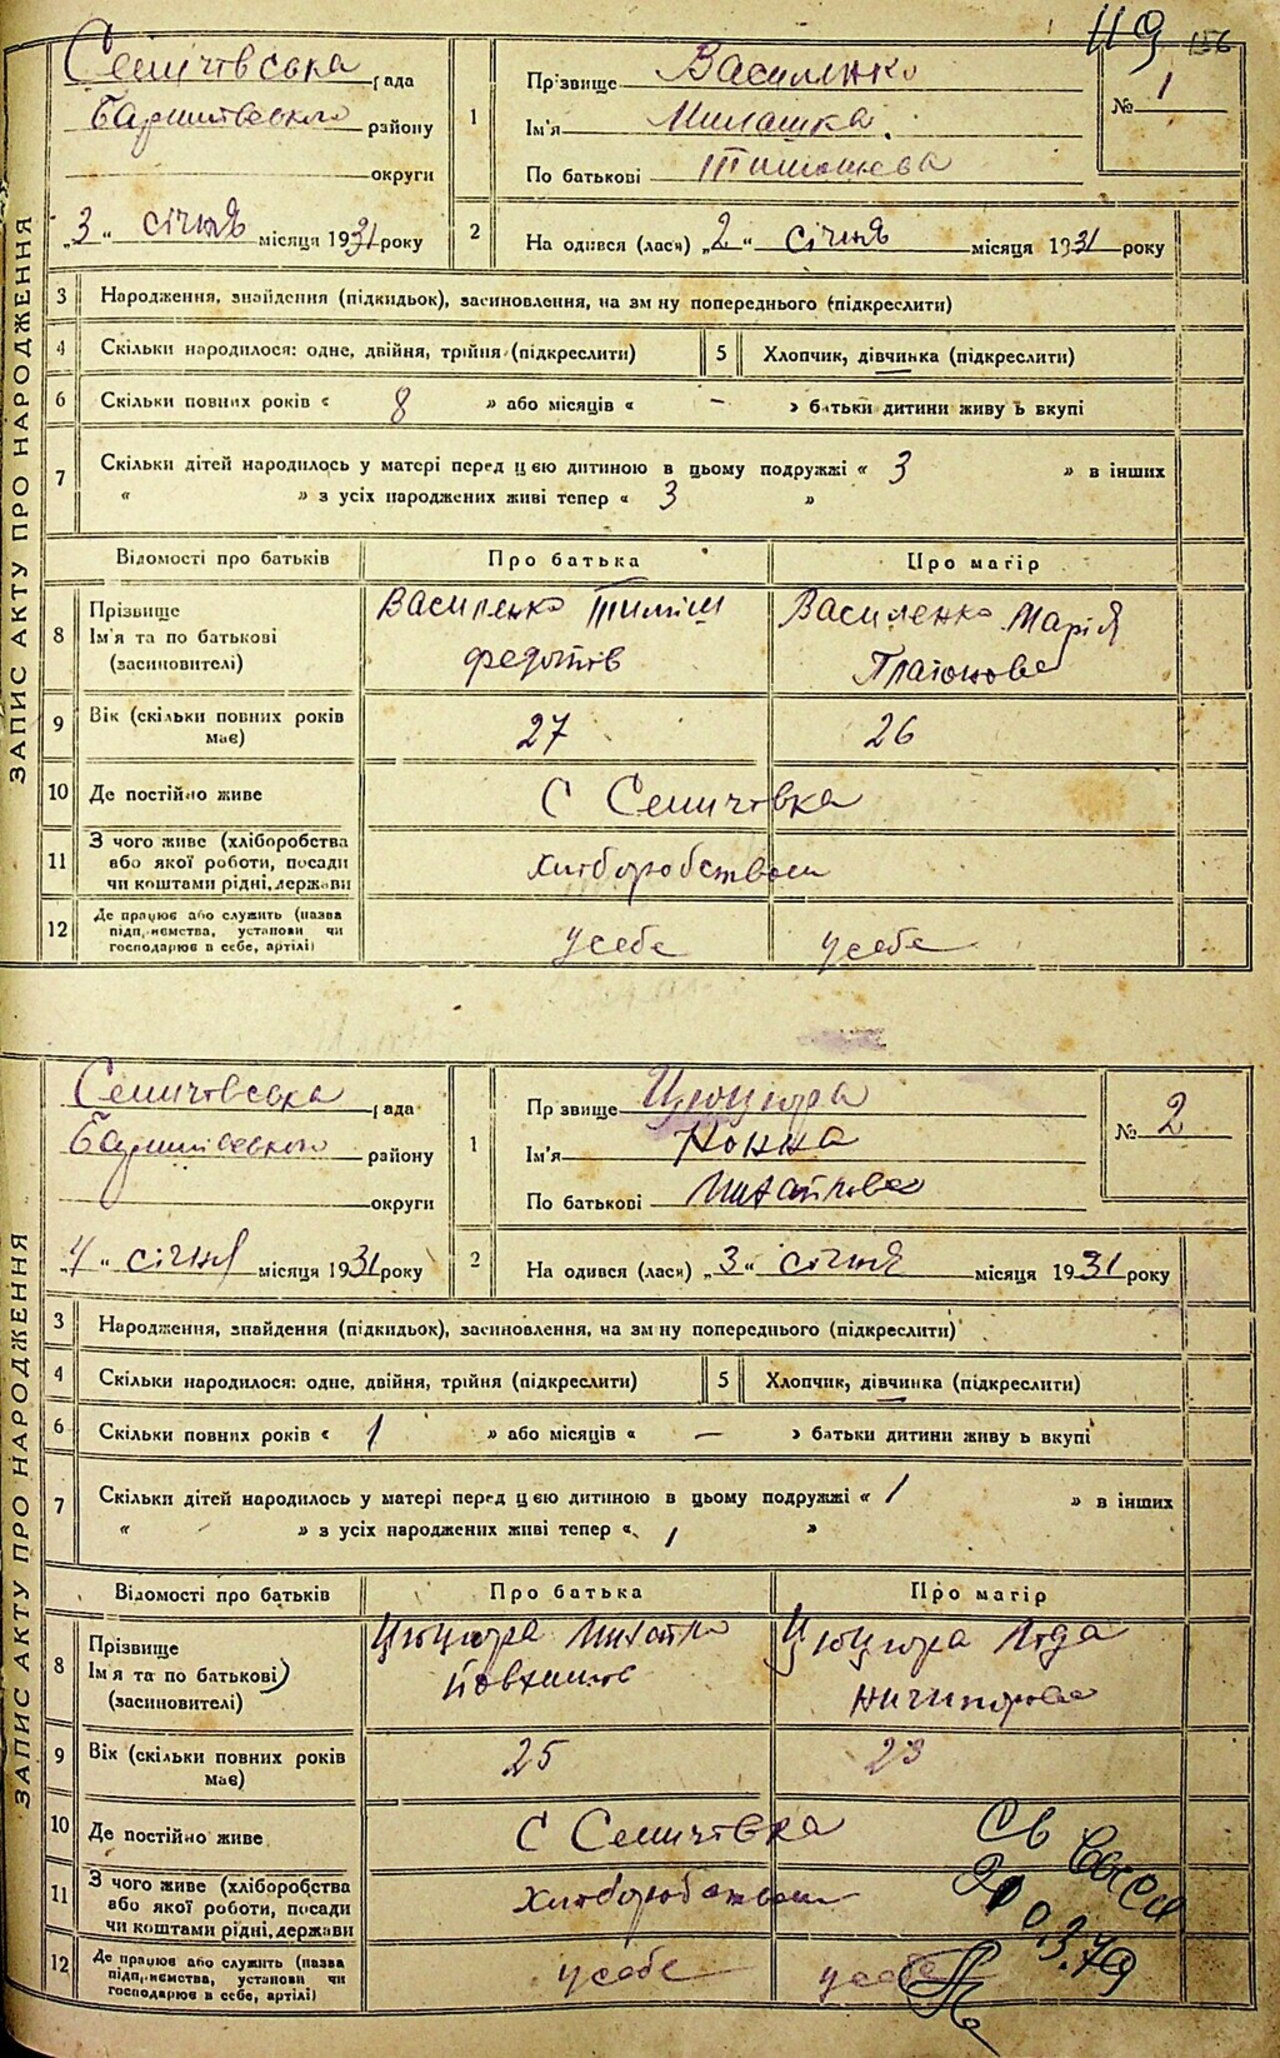 119 156
Семичовська рада
Баришівського району
округи
„3“ січня місяця 1931 року
1
Прізвище Василенко
Ім'я Милашка
По батькові Тимошева
№ 1
2
На одився (лася) „2“ січня місяця 1931 року
ЗАПИС АКТУ ПРО НАРОДЖЕННЯ
3 Народження, знайдення (підкидьок), засиновлення, на зм ну попереднього (підкреслити)
4 Скільки народилося: одне, двійня, трійня (підкреслити) 5 Хлопчик, дівчинка (підкреслити)
6 Скільки повних років « 8 » або місяців « – » батьки дитини живу ь вкупі
7 Скільки дітей народилось у матері перед цією дитиною в цьому подружжі « 3 » в інших
« » з усіх народжених живі тепер « 3 »
Відомості про батьків Про батька Про матір
8 Прізвище
Ім'я та по батькові
(засиновителі)
Василенко Тиміш
Федотів
Василенко Марія
Платонова
9 Вік (скільки повних років
має)
27 26
10 Де постійно живе С Семичовка
11 З чого живе (хліборобства
або якої роботи, посади
чи коштами рідні, держави
хліборобством
12 Де працює або служить (назва
підп, иємства, установи чи
господарює в себе, артілі)
у себе у себе
Семичовська рада
Баришівського району
округи
„4“ січня місяця 1931 року
1
Пр звище Цюцюра
Ім'я Нонна
По батькові Михайлова
№ 2
2
На одився (лася) „3“ січня місяця 1931 року
ЗАПИС АКТУ ПРО НАРОДЖЕННЯ
3 Народження, знайдення (підкидьок), засиновлення, на зм ну попереднього (підкреслити)
4 Скільки народилося: одне, двійня, трійня (підкреслити) 5 Хлопчик, дівчинка (підкреслити)
6 Скільки повних років « 1 » або місяців « – » батьки дитини живу ь вкупі
7 Скільки дітей народилось у матері перед цією дитиною в цьому подружжі « 1 » в інших
« » з усіх народжених живі тепер « 1 »
Відомості про батьків Про батька Про матір
8 Прізвище
Ім'я та по батькові
(засиновителі)
Цюцюра Михайло
Цюцюра Ліда
Ничипорова
9 Вік (скільки повних років
має)
25 23
10 Де постійно живе С Семичовка
11 З чого живе (хліборобства
або якої роботи, посади
чи коштами рідні, держави
хліборобством
12 Де працює або служить (назва
підп, иємства, установи чи
господарює в себе, артілі)
у себе у себе
Св